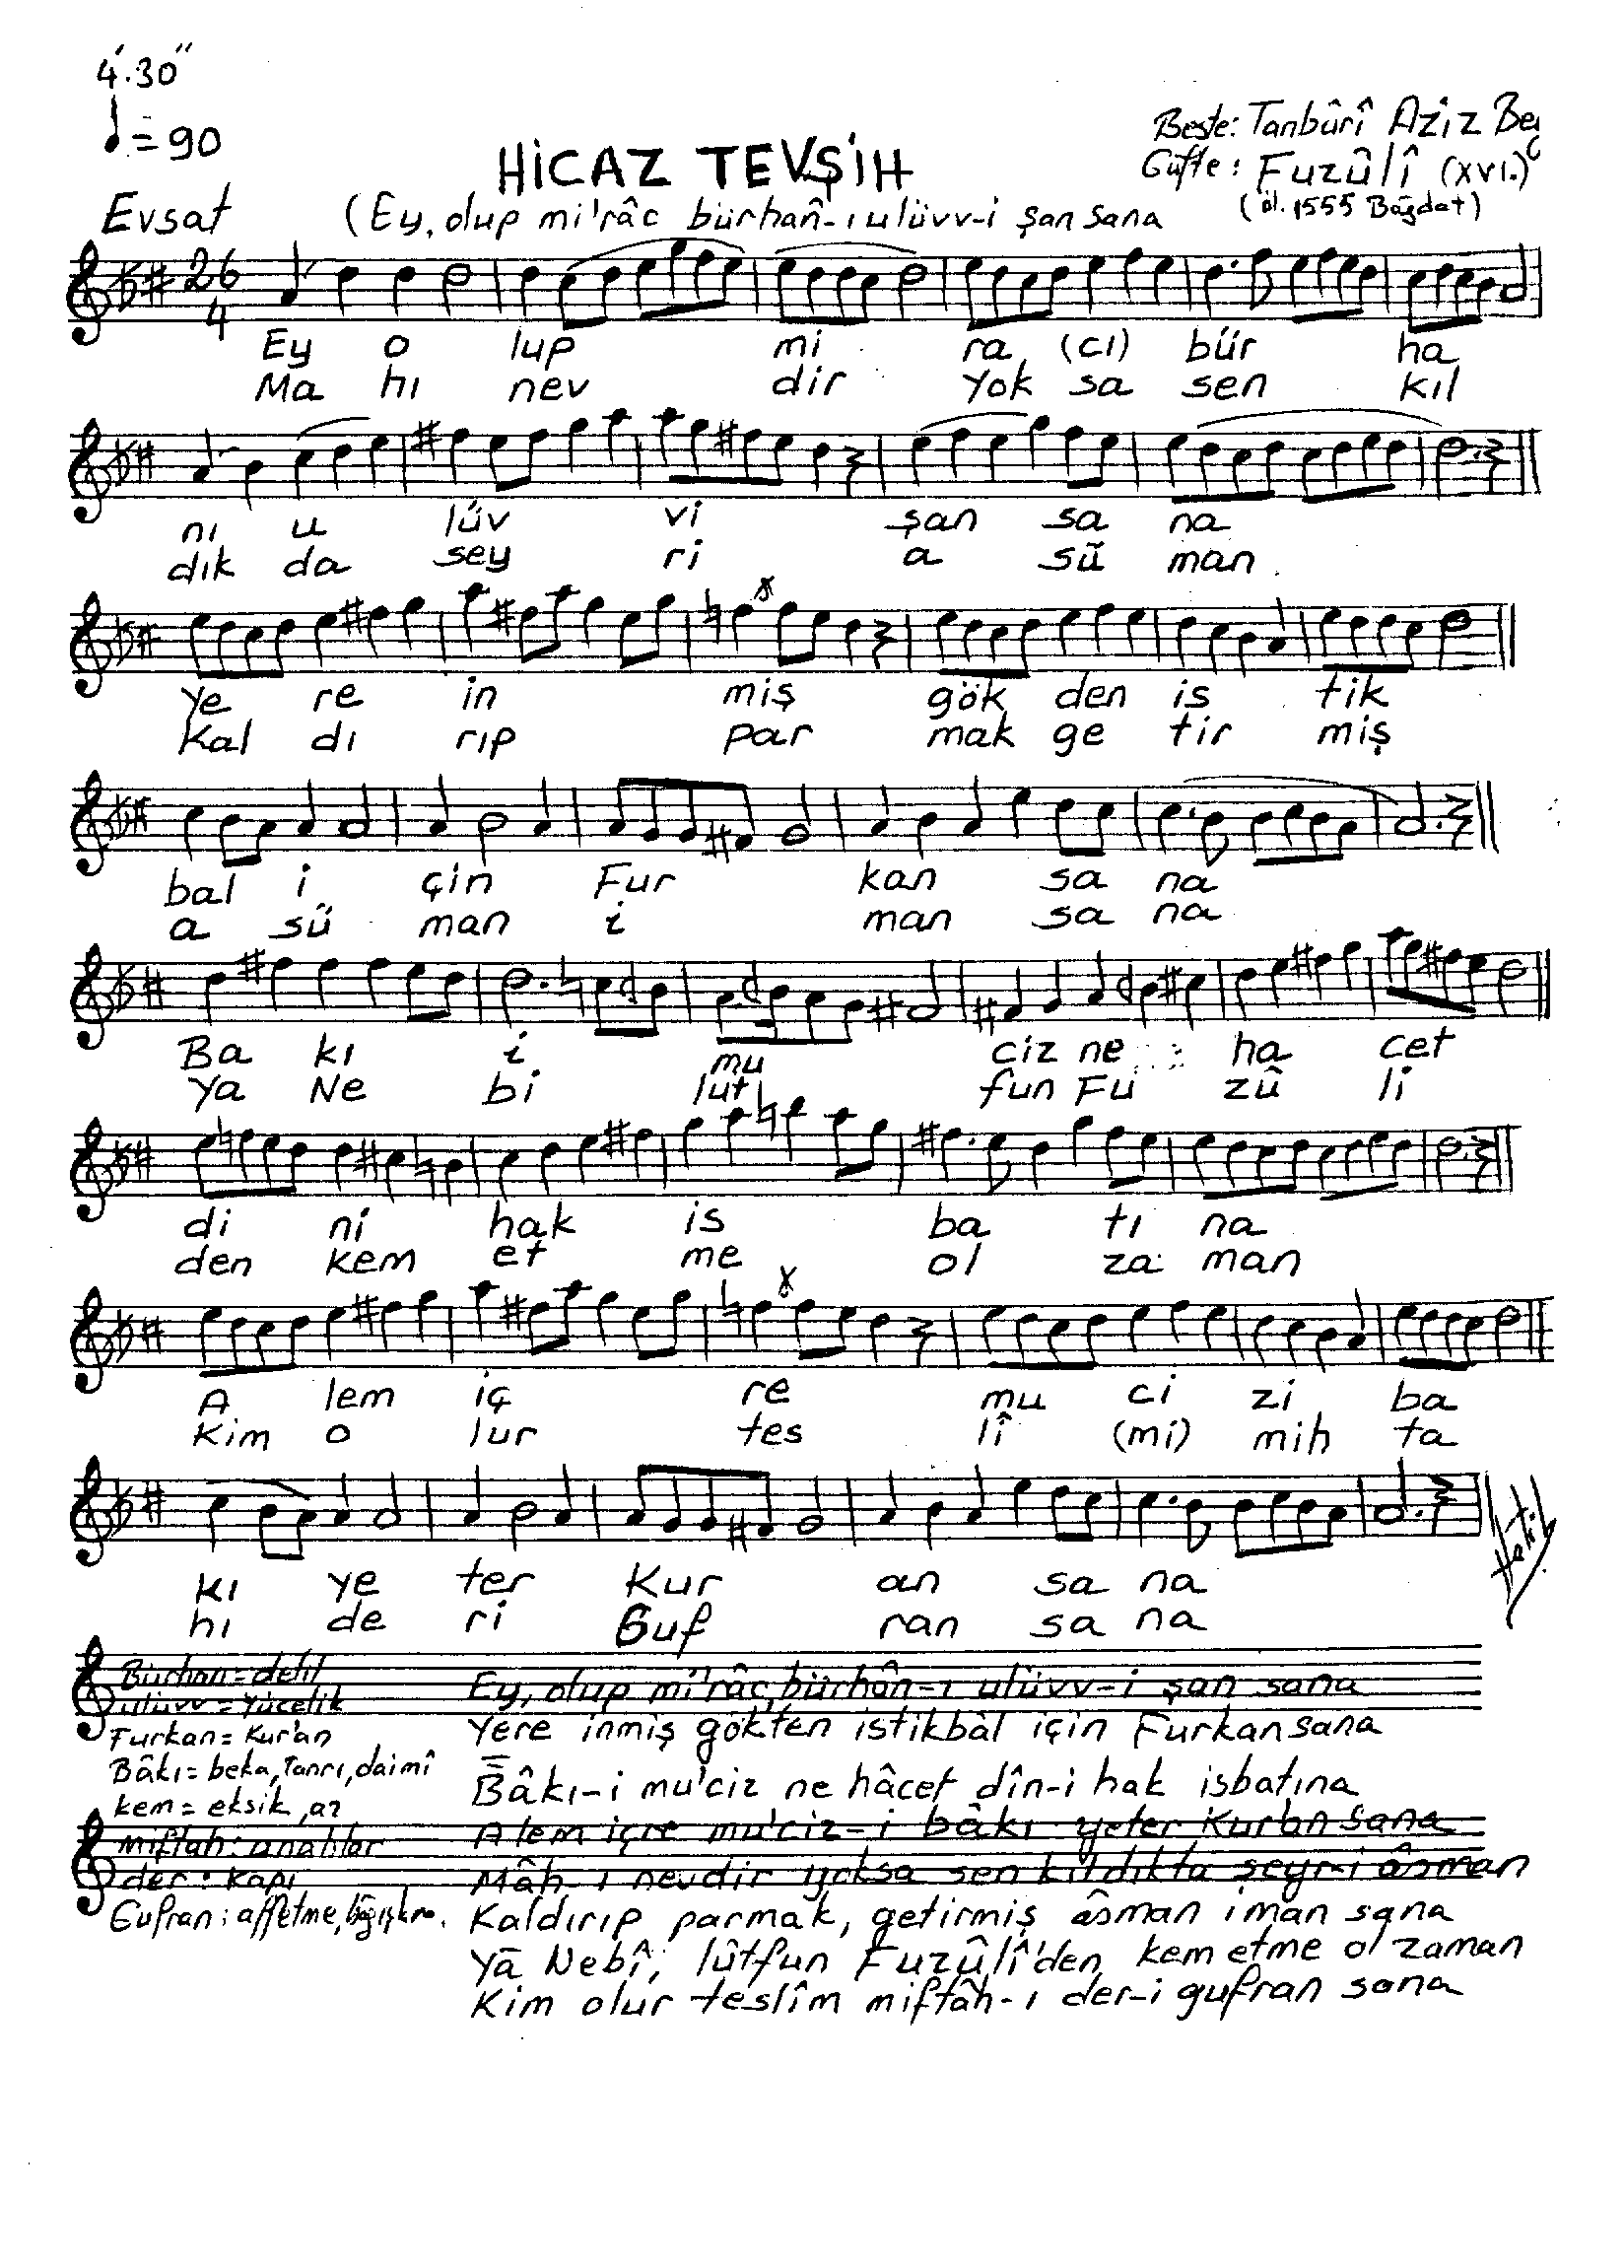 4'.30"
= 90
Beste: Tanbûrî Aziz Bey
HİCAZ TEVŞİH
Güfte: Fuzûlî (XVI.)
Evsat
(Ey, olup mi'râc bürhan̂-ı ulüvv-i şan sana
(öl. 1555 Bağdat)
26
4
Ey o lup mi ra (cı) bür ha
Ma hı nev dir Yok sa sen kıl
nı u lüv vi şan sa na
dık da sey ri a sü man
Ye re in miş gök den is tik
Kal dı rıp par mak ge tir miş
bal i çin Fur kan sa na
a sü man i man sa na
Ba kı i mu ciz ne ha cet
Ya Ne bi lut fun Fu zû li
di ni hak is ba tı na
den kem et me ol za man
A lem iç re mu ci zi ba
Kim o lur tes lî (mi) mih ta
kı ye ter Kur an sa na
hı de ri Guf ran sa na
Bürhan = delil
ulüvv = Yücelik
Furkan = Kur'an
Bâkı = beka, Tanrı, daimî
kem = eksik, az
miftah: anahtar
der: Kapı
Gufran: affetme,
Ey, olup mi'râc, bürhân-ı ulüvv-i şan sana
Yere inmiş gök'ten istikbâl için Furkan sana
Bâkı-i mu'ciz ne hâcet dîn-i hak isbatına
Alem içre mu'ciz-i bâkı yeter Kur'an sana
Mâh-ı nevdir yoksa sen kıldıkta seyr-i âsman
Kaldırıp parmak, getirmiş âsman iman sana
Yā Nebî, lûtfun Fuzûlî'den kem etme ol zaman
Kim olur teslîm miftâh-ı der-i gufran sana